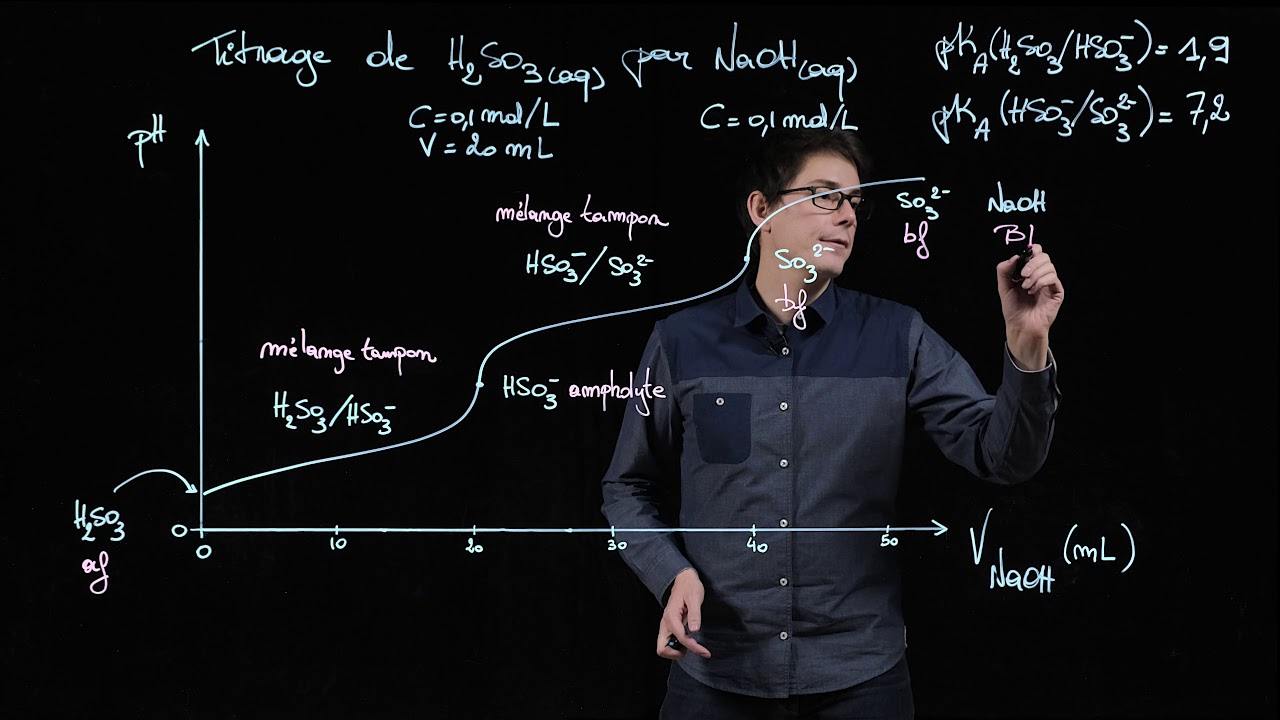 Titrage de H₂SO₃(aq) par NaOH(aq)
C = 0,1 mol/L
V = 20 mL
C = 0,1 mol/L
pKA (H₂SO₃/HSO₃⁻) = 1,9
pKA (HSO₃⁻/SO₃²⁻) = 7,2
pH
mélange tampon
HSO₃⁻/SO₃²⁻
SO₃²⁻
bf
NaOH
BF
SO₃²⁻
bf
mélange tampon
H₂SO₃/HSO₃⁻
HSO₃⁻ ampholyte
H₂SO₃
af
0
0 10 20 30 40 50
V NaOH (mL)